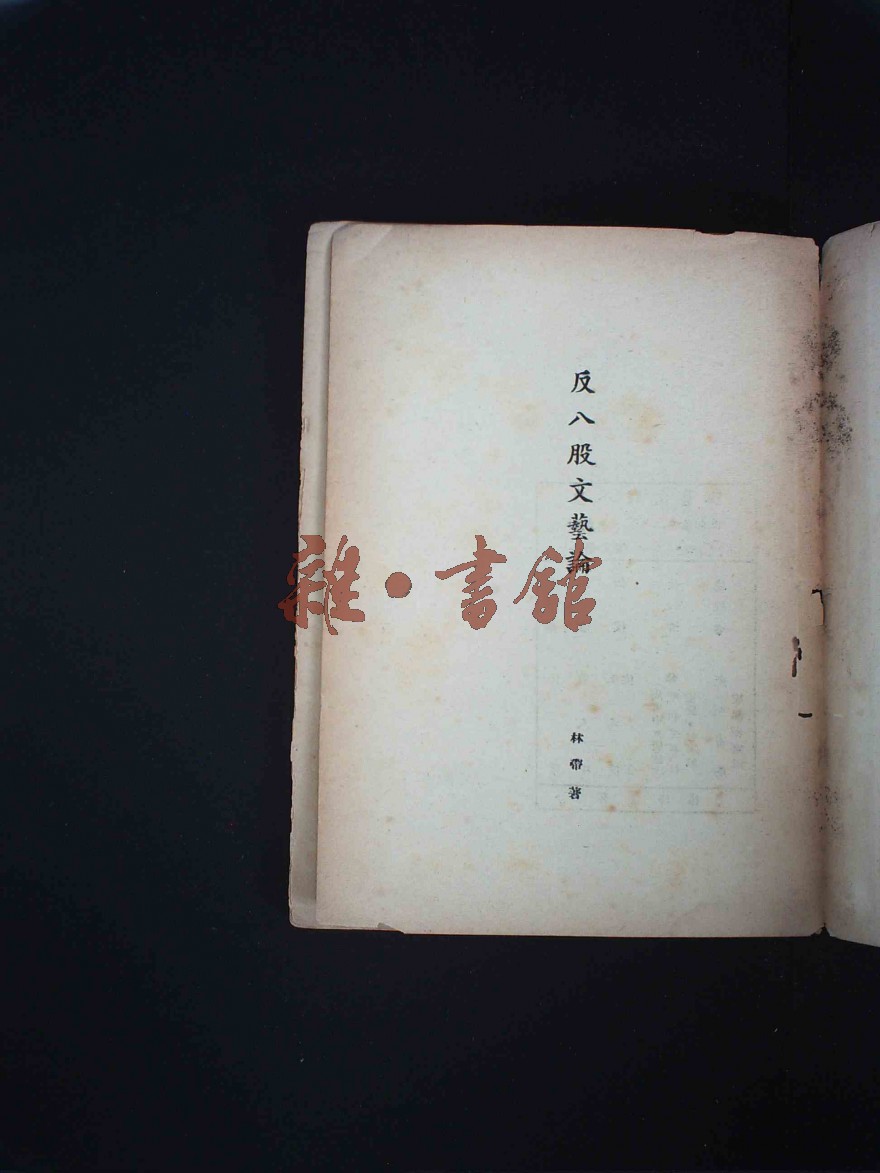 反八股文藝論
林帶著
雜·書館